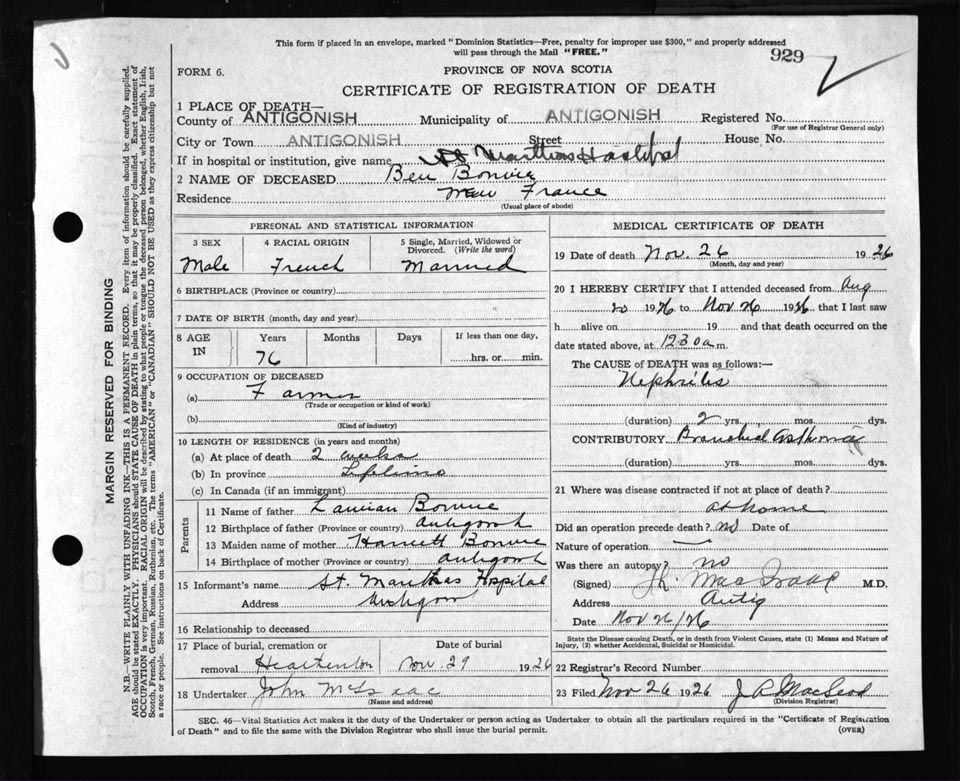 This form if placed in an envelope, marked "Dominion Statistics—Free, penalty for improper use $300," and properly addressed
will pass through the Mail "FREE."
929
FORM 6.
PROVINCE OF NOVA SCOTIA
CERTIFICATE OF REGISTRATION OF DEATH
1 PLACE OF DEATH—
County of ANTIGONISH Municipality of ANTIGONISH Registered No.
(For use of Registrar General only)
City or Town ANTIGONISH Street House No.
If in hospital or institution, give name St Marthas Hospital
2 NAME OF DECEASED Ben Bonvie
Residence New France
(Usual place of abode)
PERSONAL AND STATISTICAL INFORMATION
3 SEX
Male
4 RACIAL ORIGIN
French
5 Single, Married, Widowed or
Divorced. (Write the word)
Married
6 BIRTHPLACE (Province or country)
7 DATE OF BIRTH (month, day and year)
8 AGE IN Years Months Days If less than one day,
76 hrs. or min.
9 OCCUPATION OF DECEASED
(a) Farmer
(Trade or occupation or kind of work)
(b)
(Kind of industry)
10 LENGTH OF RESIDENCE (in years and months)
(a) At place of death 2 weeks
(b) In province Lifetime
(c) In Canada (if an immigrant)
Parents
11 Name of father Bonvie
12 Birthplace of father (Province or country) Antigonish
13 Maiden name of mother Harriett Bonvie
14 Birthplace of mother (Province or country) Antigonish
15 Informant's name St. Marthas Hospital
Address Antigonish
16 Relationship to deceased
17 Place of burial, cremation or Date of burial
removal Heatherton Nov. 29 1926
18 Undertaker John McIsaac
(Name and address)
MEDICAL CERTIFICATE OF DEATH
19 Date of death Nov. 26 1926
(Month, day and year)
20 I HEREBY CERTIFY that I attended deceased from Aug
20 1926 to Nov 26 1926 that I last saw
h alive on 19 and that death occurred on
date stated above, at 12 30 a m.
The CAUSE of DEATH was as follows:—
Nephritis
(duration) 2 yrs. mos. dys.
CONTRIBUTORY Bronchial Asthma
(duration) yrs. mos. dys.
21 Where was disease contracted if not at place of death?
at home
Did an operation precede death? no Date of
Nature of operation —
Was there an autopsy? no
(Signed) MacIsaac M.D.
Address Antig
Date Nov 26/26
State the Disease causing Death, or in death from Violent Causes, state (1) Means and Nature of
Injury, (2) whether Accidental, Suicidal or Homicidal.
22 Registrar's Record Number
23 Filed Nov 26 1926 J A MacLeod
(Division Registrar)
SEC. 46—Vital Statistics Act makes it the duty of the Undertaker or person acting as Undertaker to obtain all the particulars required in the "Certificate of Registration
of Death" and to file the same with the Division Registrar who shall issue the burial permit.
(OVER)
MARGIN RESERVED FOR BINDING
N.B.—WRITE PLAINLY WITH UNFADING INK—THIS IS A PERMANENT RECORD. Every item of information should be carefully supplied.
AGE should be stated EXACTLY. PHYSICIANS should STATE CAUSE OF DEATH in plain terms, so that it may be properly classified. Exact statement of
OCCUPATION is very important. RACIAL ORIGIN will be described by stating to what people or tongue the deceased person belonged, whether English, Irish,
Scotch, French, German, Russian, Ruthenian, etc. The terms "AMERICAN" or "CANADIAN" SHOULD NOT BE USED as they express citizenship but not
a race or people. See instructions on back of Certificate.